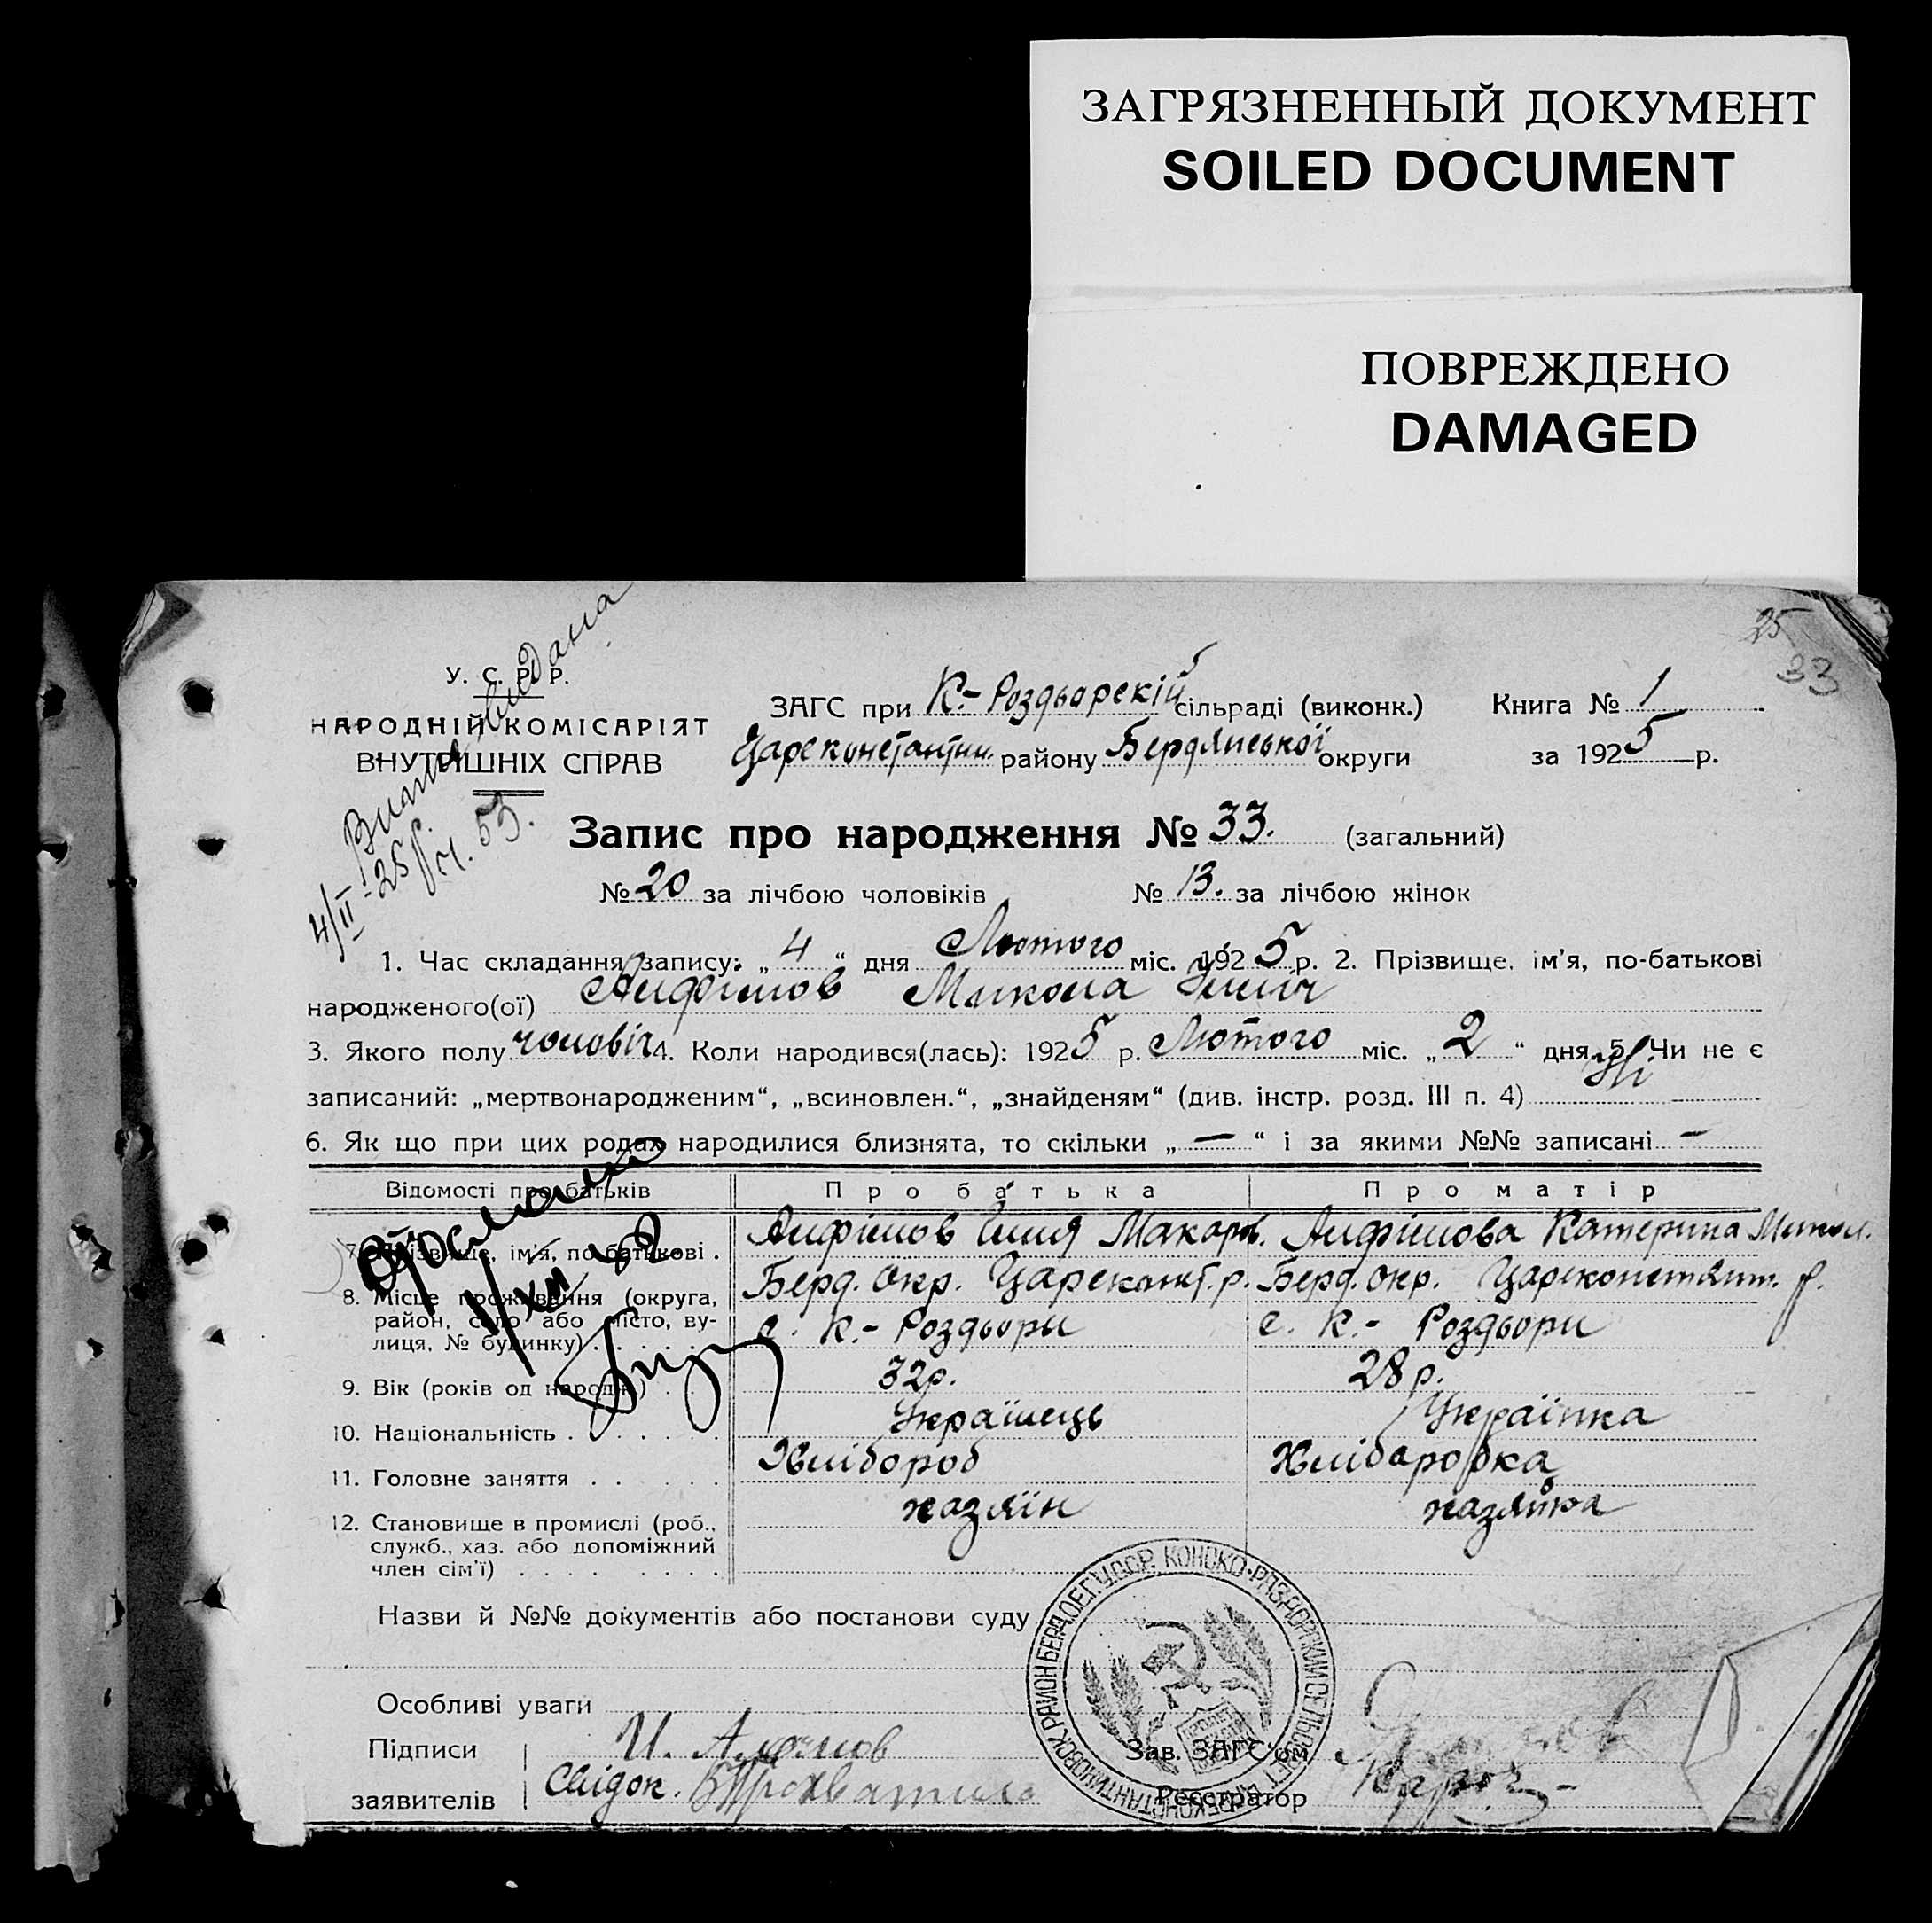 ЗАГРЯЗНЕННЫЙ ДОКУМЕНТ
SOILED DOCUMENT
ПОВРЕЖДЕНО
DAMAGED
25
33
У. С. Р. Р.
НАРОДНІЙ КОМІСАРІЯТ
ВНУТРІШНІХ СПРАВ
видана
4/II-25 р. ч. 53.
ЗАГС при К.-Роздьорскій сільраді (виконк.) Книга № 1
Цареконстантин. району Бердянської округи за 1925 р.
Запис про народження № 33. (загальний)
№ 20 за лічбою чоловіків № 13. за лічбою жінок
1. Час складання запису: „4“ дня Лютого міс. 1925 р. 2. Прізвище, ім'я, по-батькові
народженого(ої) Анфімов Микола Ілліч
3. Якого полу чоловіч 4. Коли народився(лась): 1925 р. Лютого міс. „2“ дня 5. Чи не є
записаний: „мертвонародженим“, „всиновлен.“, „знайденям“ (див. інстр. розд. III п. 4) Ні
6. Як що при цих родах народилися близнята, то скільки „—“ і за якими №№ записані —
Відомості про батьків Про батька Про матір
7. Прізвище, ім'я, по-батькові . Анфімов Ілля Макаров. Анфімова Катерина Микол.
8. Місце проживання (округа, Берд. окр. Цареконст. р. Берд. окр. Цареконстант. р.
район, село або місто, ву- с. К.- Роздьоры с. К.- Роздьори
лиця, № будинку)
9. Вік (років од народж.) 32 р. 28 р.
10. Національність Українець Українка
11. Головне заняття Хлібороб Хліборобка
12. Становище в промислі (роб., хазяїн хазяйка
служб., хаз. або допоміжний
член сім'ї)
Назви й №№ документів або постанови суду
Особливі уваги
Підписи И. Анфимов Зав. ЗАГС'ом
заявителів Свідок. Реєстратор
ЦАРЕКОНСТАНТИНОВСК РАЙОН БЕРД.ОК. У.С.С.Р. КОНСКО-РАЗДОРСКИЙ СЕЛЬСОВЕТ